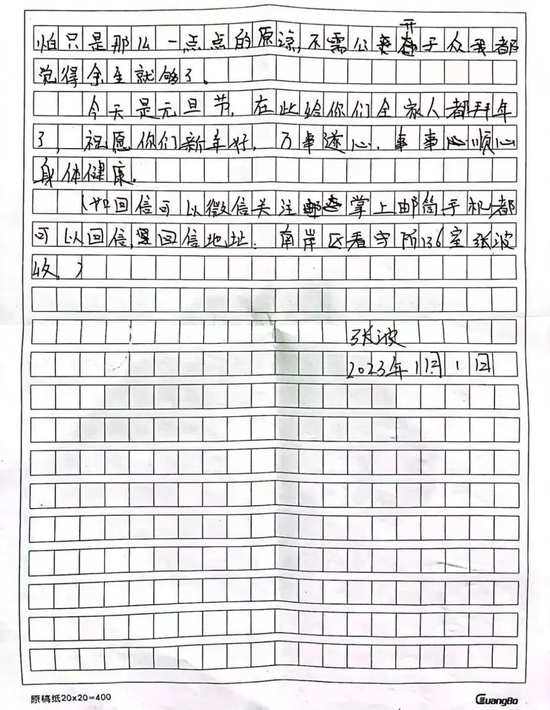 怕只是那么一点点的原谅,不需公开于众我都
觉得余生就够了。
今天是元旦节,在此给你们全家人都拜年
了,祝愿你们新年好,万事遂心,事事顺心
身体健康。
(如回信可以微信关注掌上邮筒手机都
可以回信,回信地址:南岸区看守所136室张波
收。)
张波
2023年1月1日
原稿纸20×20=400
GuangBo